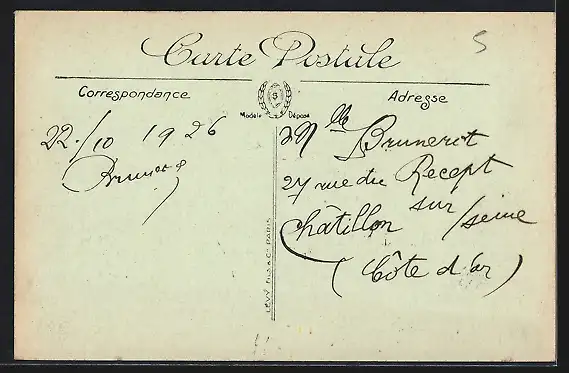 Carte Postale
5
Correspondance
Adresse
Modèle Déposé
S
22./10 1926
Mlle Brunerot
27 rue du Recept
Châtillon sur/seine
(Côte d'or)
LEVY FILS & Cie PARIS